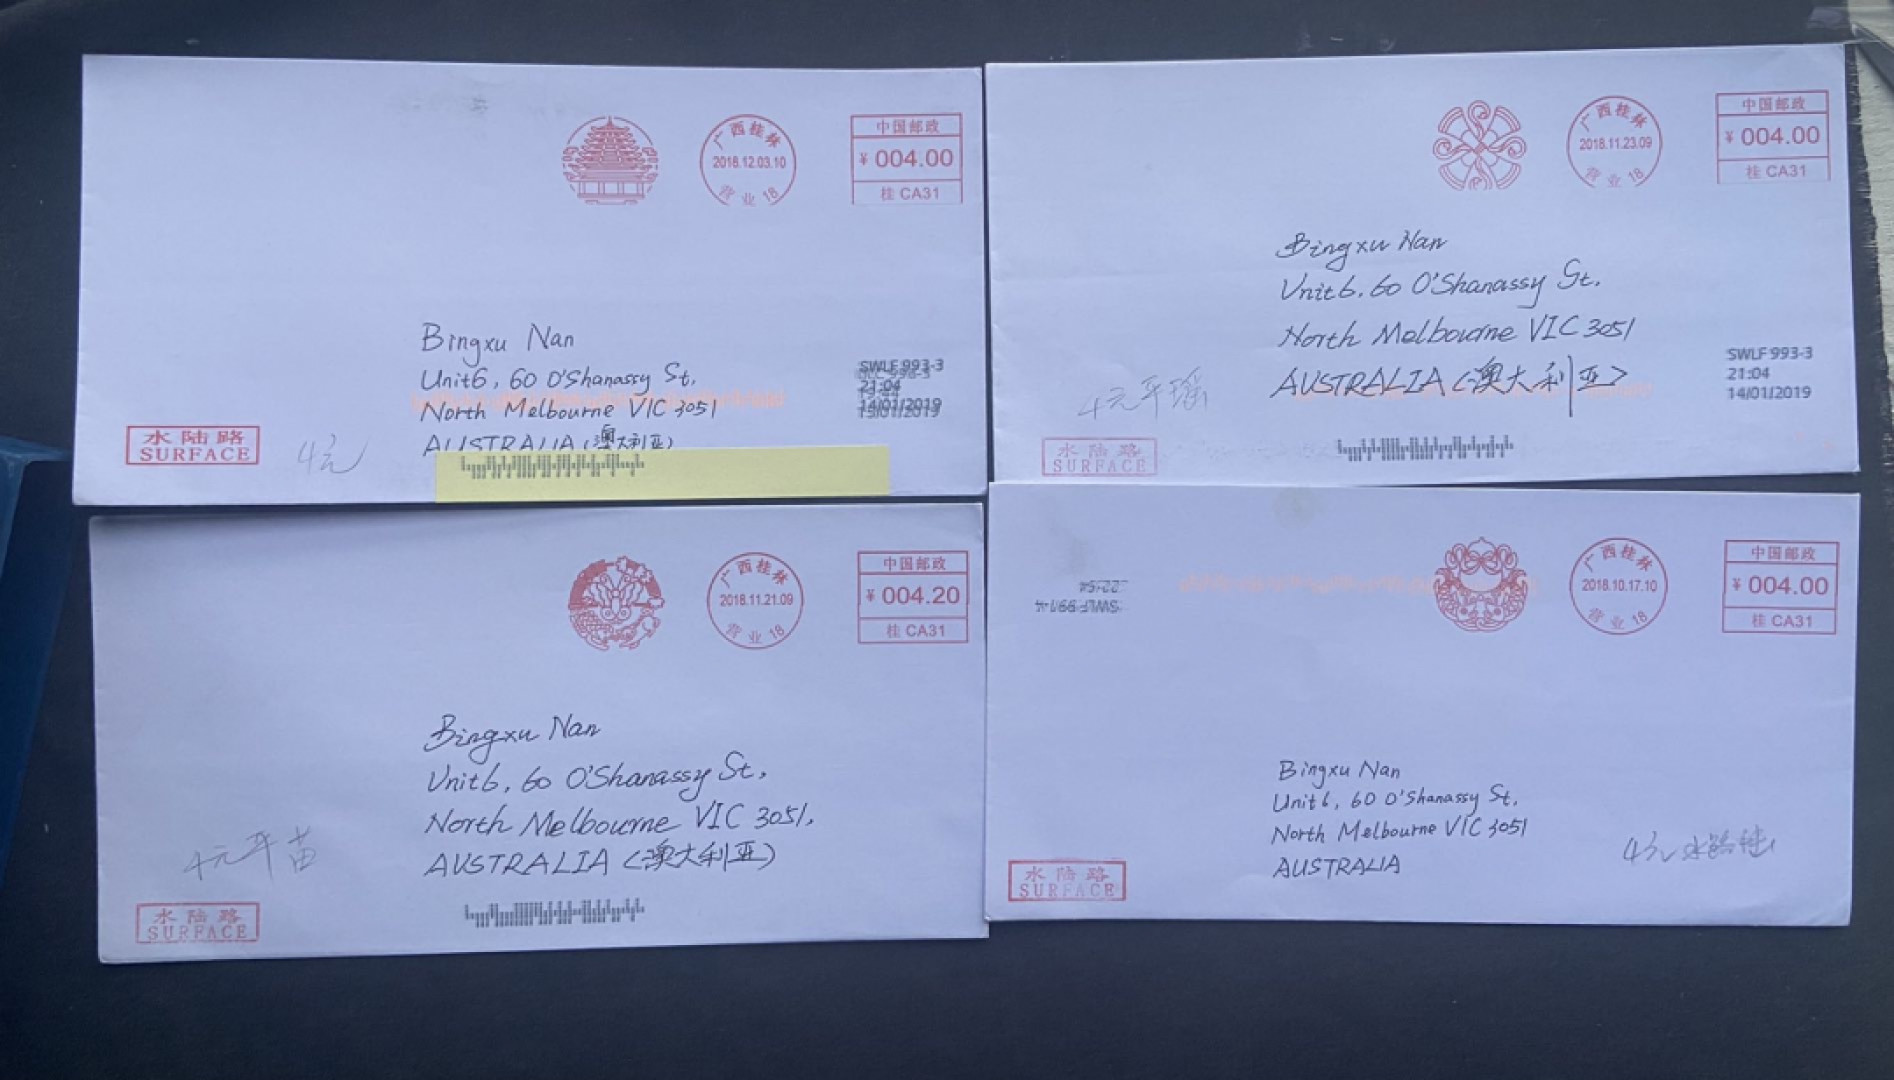 广西桂林
2018.12.03.10
营业 18
中国邮政
¥ 004.00
桂 CA31
Bingxu Nan
Unit6, 60 O'Shanassy St,
North Melbourne VIC 3051
AUSTRALIA (澳大利亚)
SWLF 993-3
21:04
14/01/2019
15/01/2019
水陆路
SURFACE
4元
广西桂林
2018.11.23.09
营业 18
中国邮政
¥ 004.00
桂 CA31
Bingxu Nan
Unit6, 60 O'Shanassy St,
North Melbourne VIC 3051
AUSTRALIA (澳大利亚)
SWLF 993-3
21:04
14/01/2019
4元平瑶
水陆路
SURFACE
广西桂林
2018.11.21.09
营业 18
中国邮政
¥ 004.20
桂 CA31
Bingxu Nan
Unit6, 60 O'Shanassy St,
North Melbourne VIC 3051,
AUSTRALIA (澳大利亚)
4元平苗
水陆路
SURFACE
广西桂林
2018.10.17.10
营业 18
中国邮政
¥ 004.00
桂 CA31
Bingxu Nan
Unit6, 60 O'Shanassy St,
North Melbourne VIC 3051
AUSTRALIA
4元水路
水陆路
SURFACE